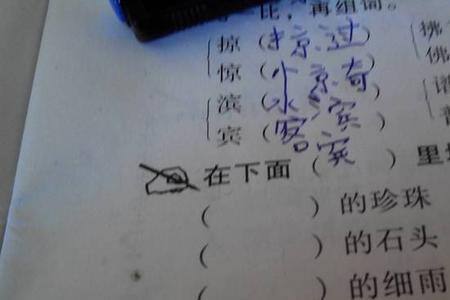 比，再组词。
掠（掠过）
惊（惊奇） 佛
滨（水滨）
宾（客宾）
在下面（ ）里
（ ）的珍珠
（ ）的石头
（ ）的细雨